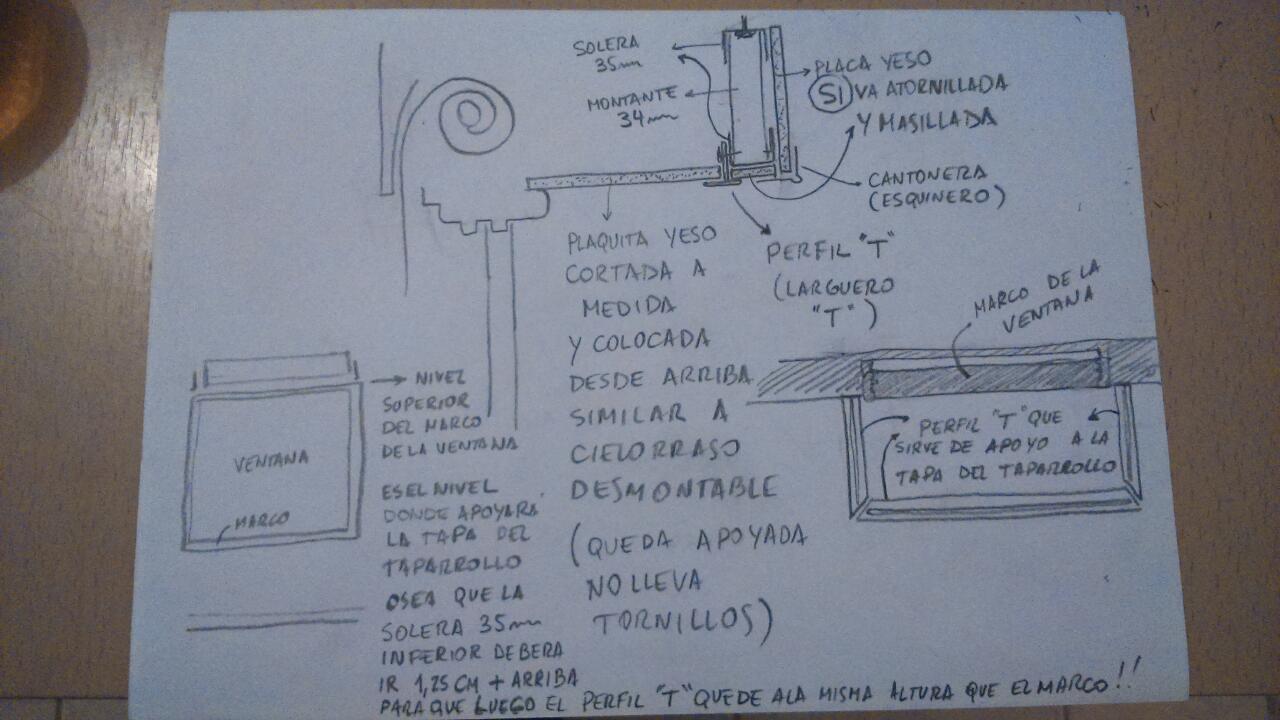 SOLERA
35mm
MONTANTE
34mm
PLACA YESO
SI VA ATORNILLADA
Y MASILLADA
CANTONERA
(ESQUINERO)
PERFIL "T"
(LARGUERO
"T")
PLAQUITA YESO
CORTADA A
MEDIDA
Y COLOCADA
DESDE ARRIBA
SIMILAR A
CIELORRASO
DESMONTABLE
(QUEDA APOYADA
NO LLEVA
TORNILLOS)
MARCO DE LA
VENTANA
PERFIL "T" QUE
SIRVE DE APOYO A LA
TAPA DEL TAPARROLLO
VENTANA
MARCO
NIVEL
SUPERIOR
DEL MARCO
DE LA VENTANA
ES EL NIVEL
DONDE APOYARA
LA TAPA DEL
TAPARROLLO
OSEA QUE LA
SOLERA 35mm
INFERIOR DEBERA
IR 1,25 CM + ARRIBA
PARA QUE LUEGO EL PERFIL "T" QUEDE A LA MISMA ALTURA QUE EL MARCO!!